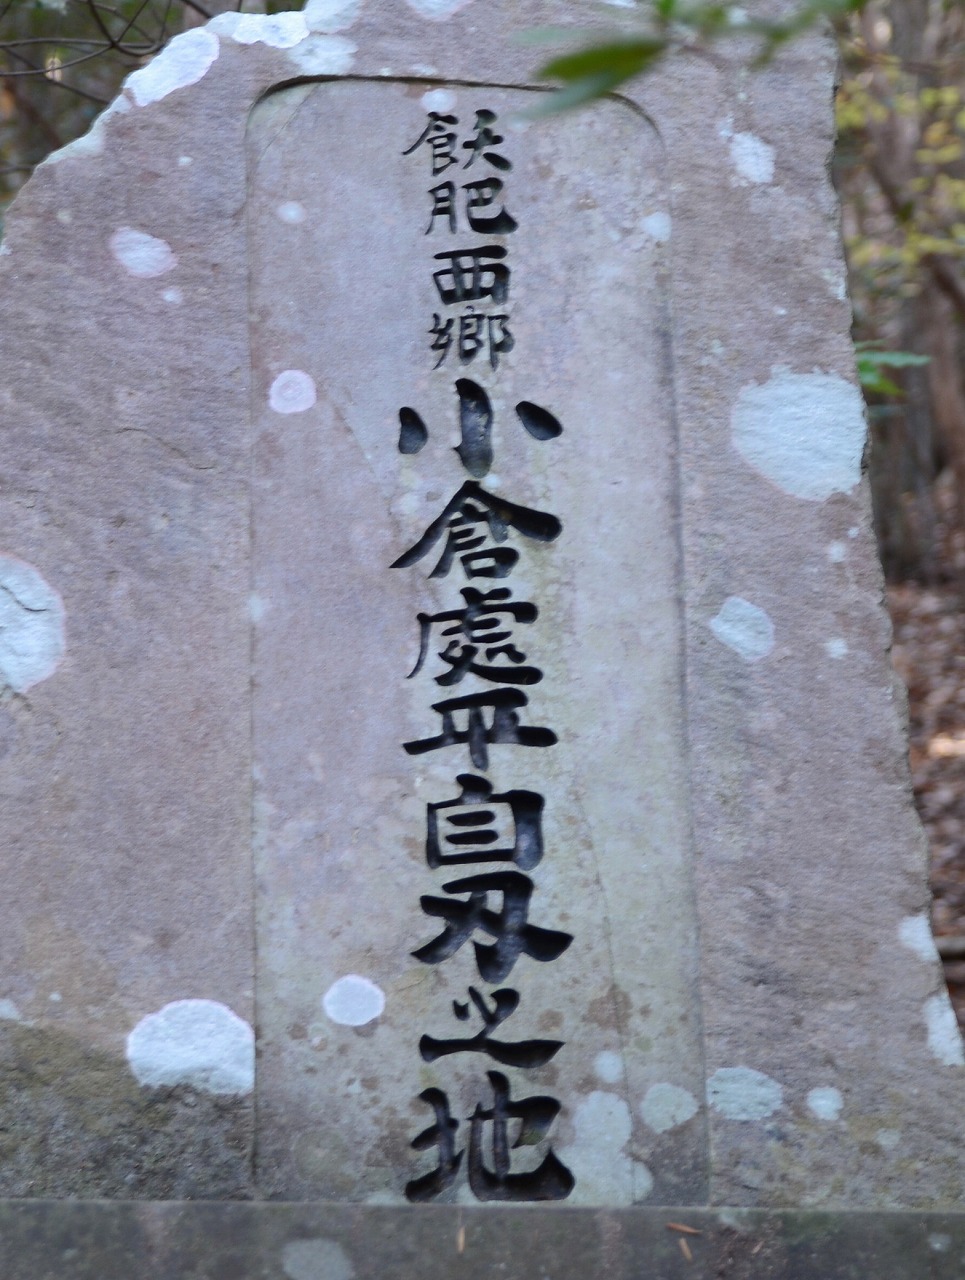 飫肥西郷小倉處平自刄之地